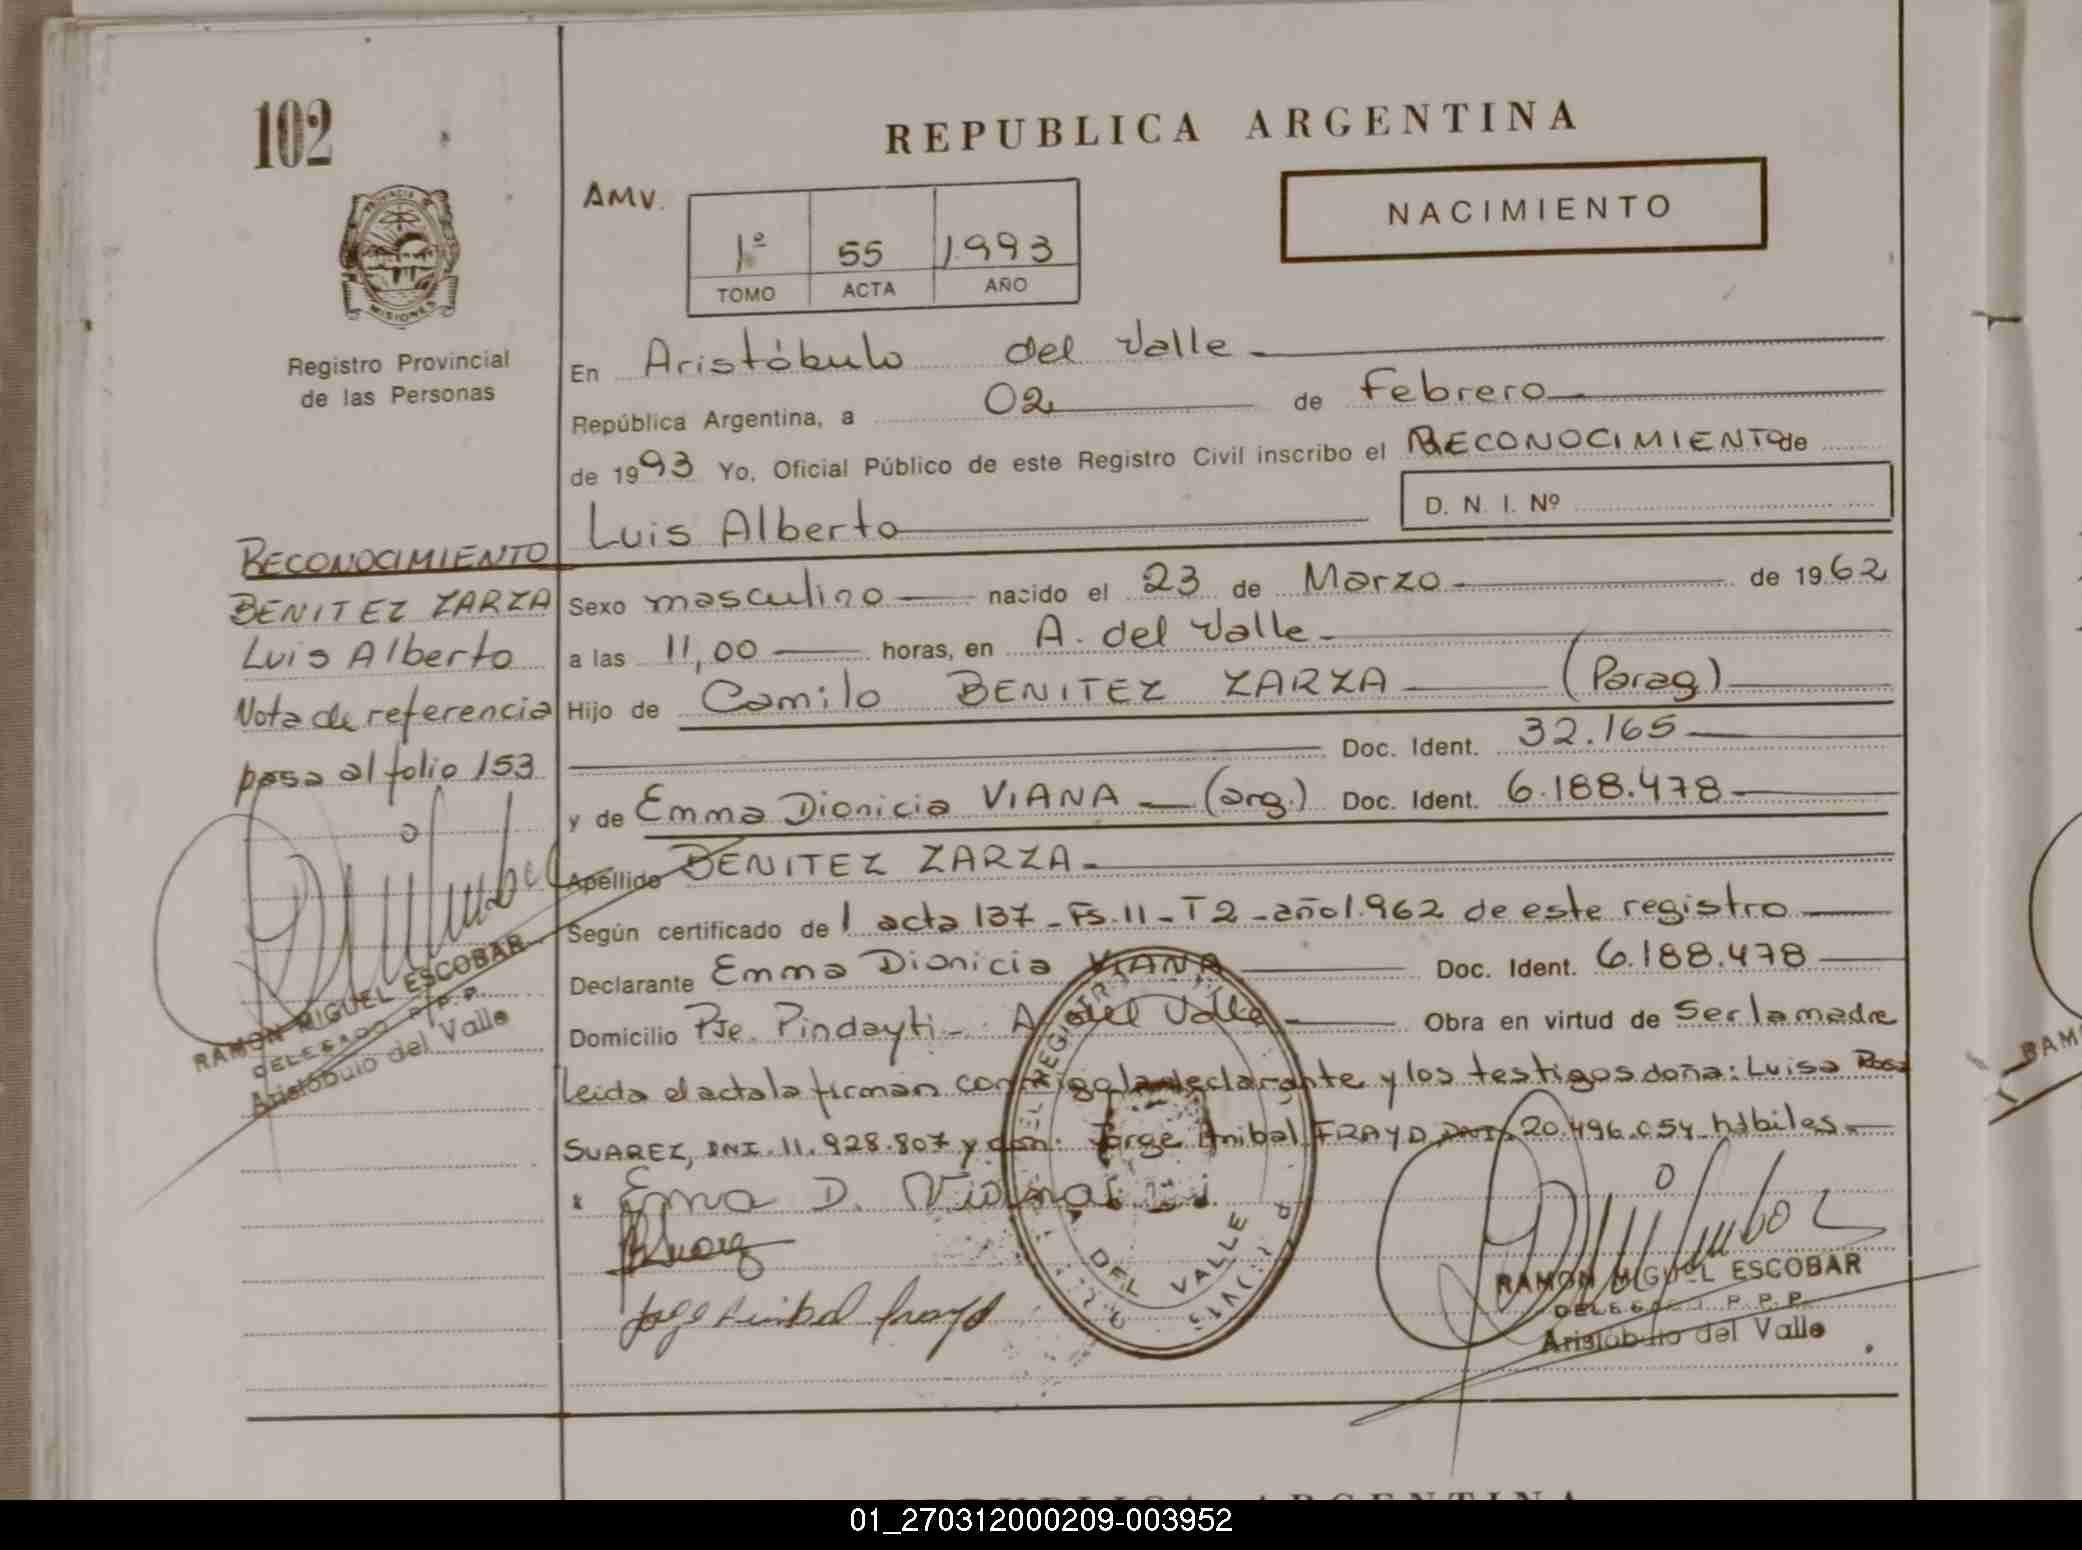 102
REPUBLICA ARGENTINA
AMV.
NACIMIENTO
1º 55 1.993
TOMO ACTA AÑO
PROVINCIA DE
MISIONES
Registro Provincial
de las Personas
En Aristóbulo del Valle
República Argentina, a 02 de Febrero
de 1993 Yo, Oficial Público de este Registro Civil inscribo el RECONOCIMIENTO de
D. N. I. Nº
Luis Alberto
RECONOCIMIENTO
BENITEZ ZARZA
Luis Alberto
Nota de referencia
pasa al folio 153
RAMON MIGUEL ESCOBAR
DELEGADO R.P.P.
Aristóbulo del Valle
Sexo masculino nacido el 23 de Marzo de 1962
a las 11,00 horas, en A. del Valle
Hijo de Camilo BENITEZ ZARZA (Parag)
Doc. Ident. 32.165
y de Emma Dionicia VIANA (arg.) Doc. Ident. 6.188.478
Apellido BENITEZ ZARZA
Según certificado de 1 acta 137 - Fs. 11 - T 2 - año 1.962 de este registro
Declarante Emma Dionicia VIANA Doc. Ident. 6.188.478
Domicilio Pje. Pindayti - A. del Valle Obra en virtud de Ser la madre
Leida el acta la firman conmigo la declarante y los testigos doña: Luisa Rosa
SUAREZ, DNI. 11.928.807 y don: Jorge Anibal FRAYD DNI. 20.496.054 hábiles
Emma D. Viana
Suarez
Jorge Anibal Frayd
DEL VALLE
RAMON MIGUEL ESCOBAR
DELEGADO R.P.P.
Aristóbulo del Valle
REPUBLICA ARGENTINA
01_270312000209-003952